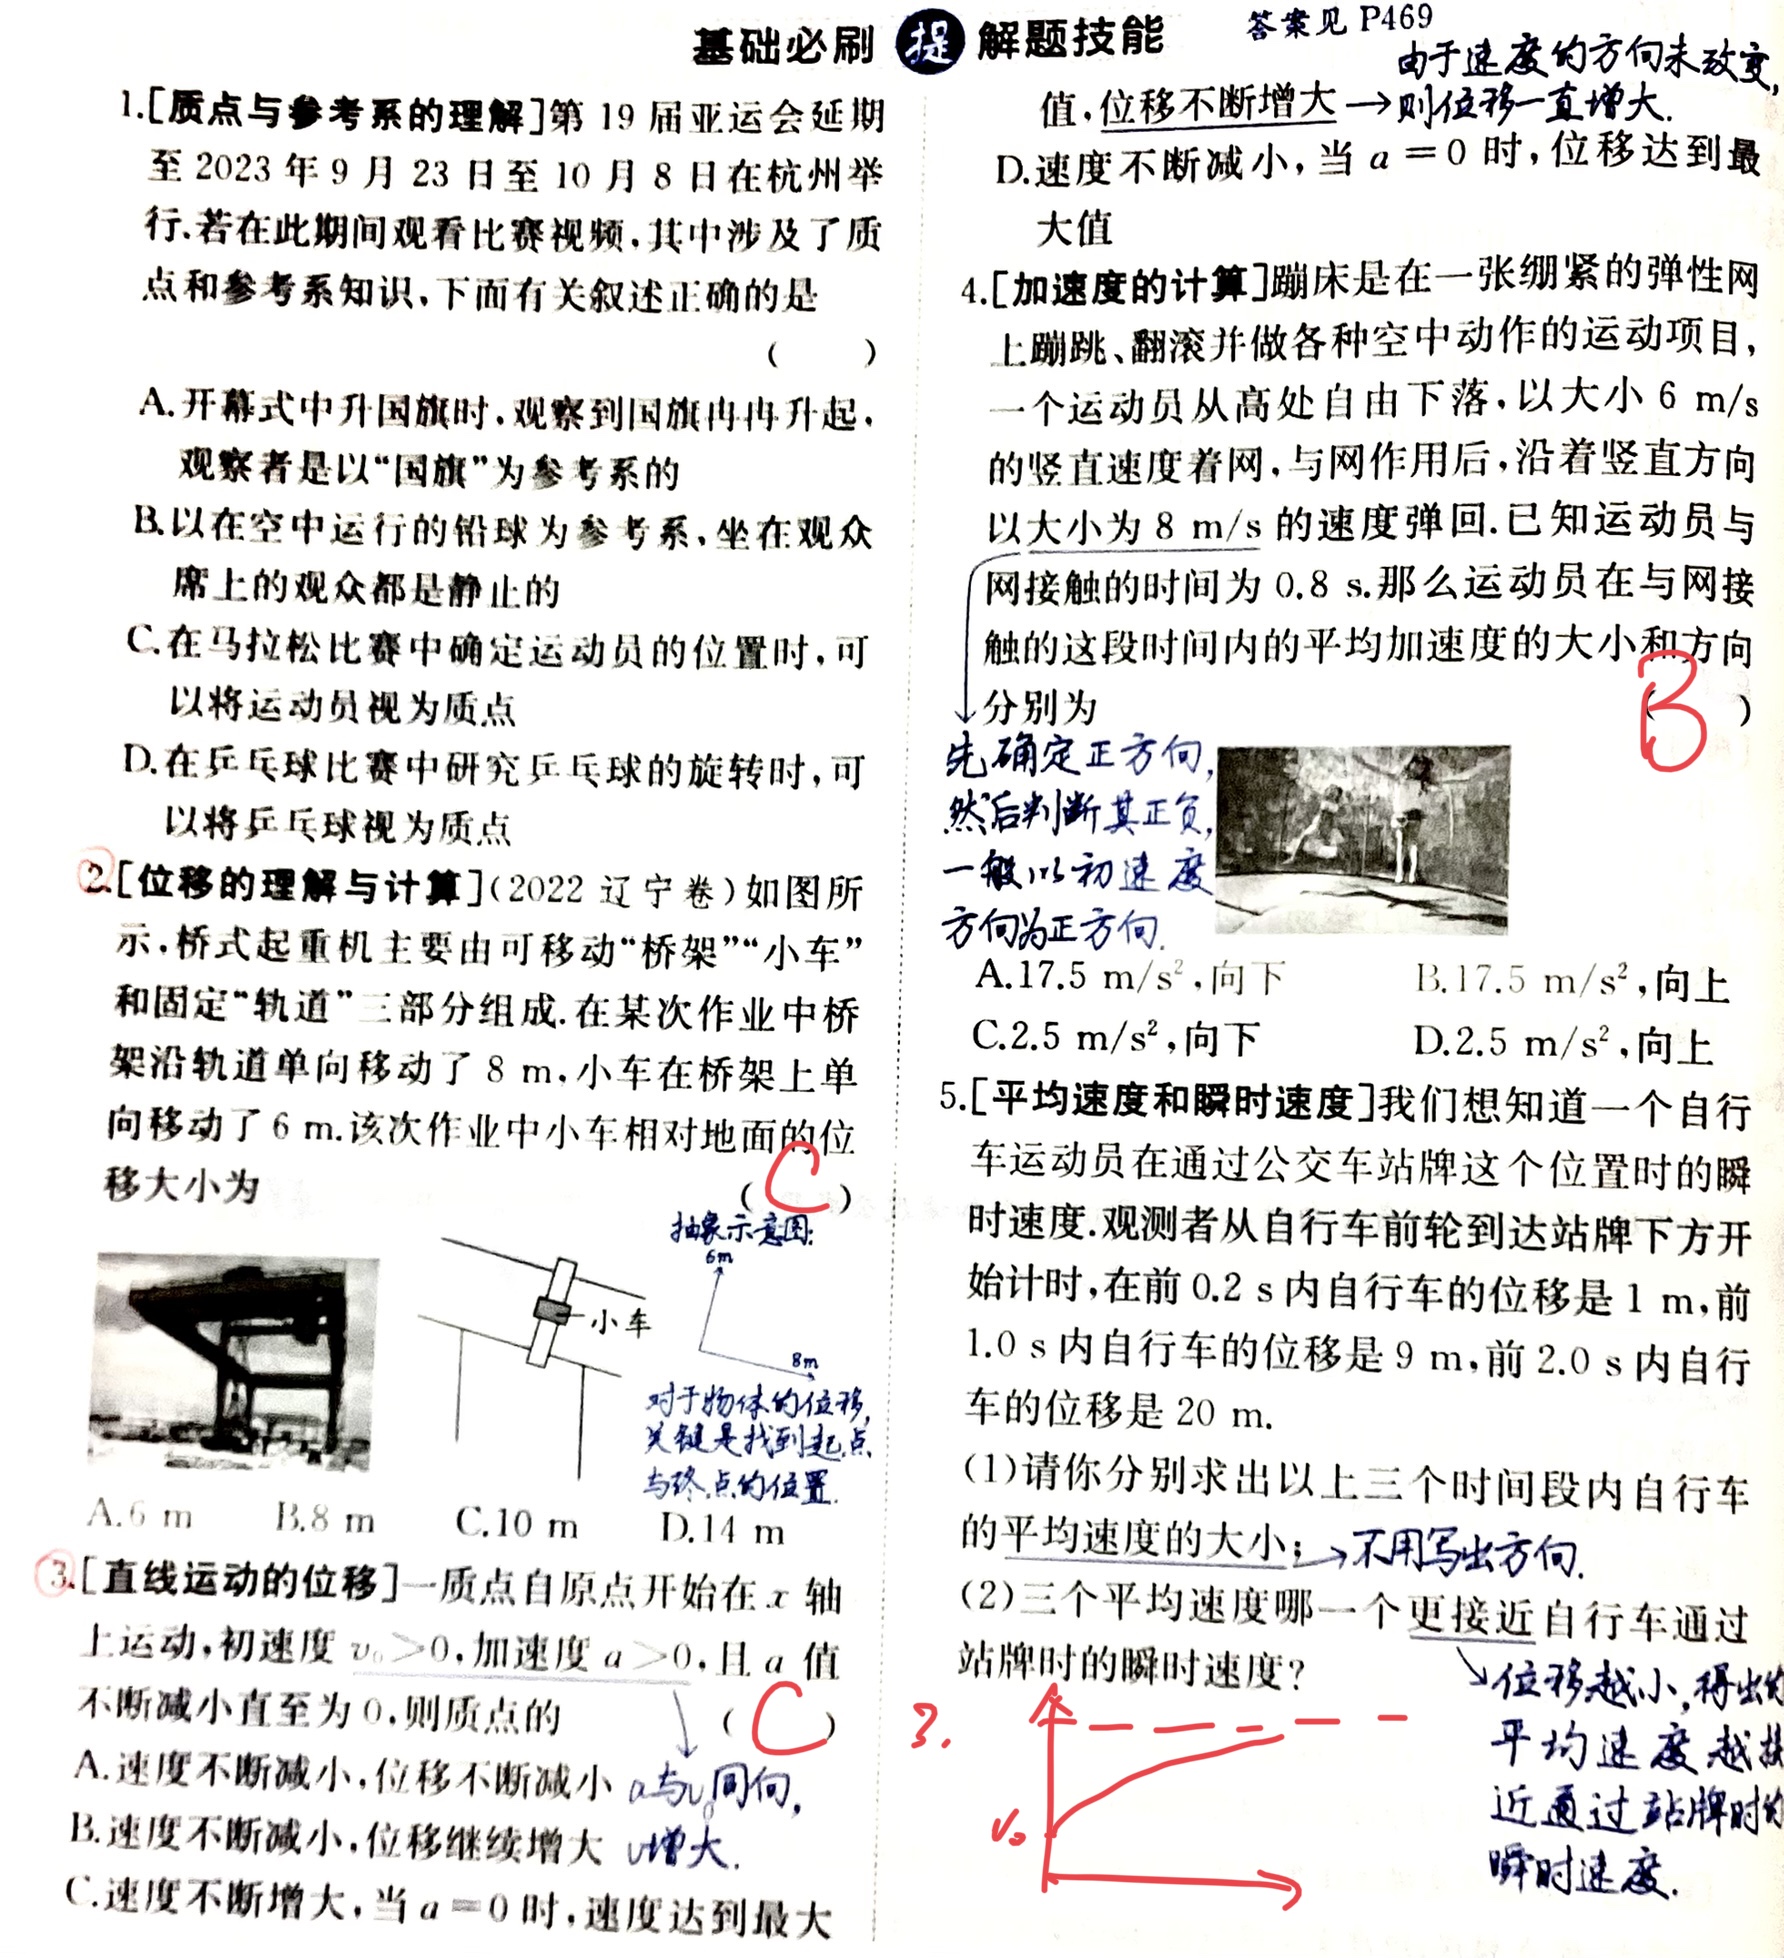 基础必刷 提 解题技能
答案见 P469
1.[质点与参考系的理解]第 19 届亚运会延期
至 2023 年 9 月 23 日至 10 月 8 日在杭州举
行.若在此期间观看比赛视频,其中涉及了质
点和参考系知识,下面有关叙述正确的是
(    )
A.开幕式中升国旗时,观察到国旗冉冉升起,
观察者是以“国旗”为参考系的
B.以在空中运行的铅球为参考系,坐在观众
席上的观众都是静止的
C.在马拉松比赛中确定运动员的位置时,可
以将运动员视为质点
D.在乒乓球比赛中研究乒乓球的旋转时,可
以将乒乓球视为质点
2.[位移的理解与计算](2022 辽宁卷)如图所
示,桥式起重机主要由可移动“桥架”“小车”
和固定“轨道”三部分组成.在某次作业中桥
架沿轨道单向移动了 8 m,小车在桥架上单
向移动了 6 m.该次作业中小车相对地面的位
移大小为 ( C )
抽象示意图:
6m
小车
8m
对于物体的位移,
关键是找到起点
与终点的位置.
A.6 m B.8 m C.10 m D.14 m
3.[直线运动的位移]一质点自原点开始在 x 轴
上运动,初速度 v₀>0,加速度 a>0,且 a 值
不断减小直至为 0,则质点的 ( C )
A.速度不断减小,位移不断减小
a与v₀同向,
B.速度不断减小,位移继续增大
v增大.
C.速度不断增大,当 a=0 时,速度达到最大
由于速度的方向未改变,
值,位移不断增大→则位移一直增大.
D.速度不断减小,当 a=0 时,位移达到最
大值
4.[加速度的计算]蹦床是在一张绷紧的弹性网
上蹦跳、翻滚并做各种空中动作的运动项目,
一个运动员从高处自由下落,以大小 6 m/s
的竖直速度着网,与网作用后,沿着竖直方向
以大小为 8 m/s 的速度弹回.已知运动员与
网接触的时间为 0.8 s.那么运动员在与网接
触的这段时间内的平均加速度的大小和方向
分别为 ( B )
先确定正方向,
然后判断其正负,
一般以初速度
方向为正方向.
A.17.5 m/s²,向下 B.17.5 m/s²,向上
C.2.5 m/s²,向下 D.2.5 m/s²,向上
5.[平均速度和瞬时速度]我们想知道一个自行
车运动员在通过公交车站牌这个位置时的瞬
时速度.观测者从自行车前轮到达站牌下方开
始计时,在前 0.2 s 内自行车的位移是 1 m,前
1.0 s 内自行车的位移是 9 m,前 2.0 s 内自行
车的位移是 20 m.
(1)请你分别求出以上三个时间段内自行车
的平均速度的大小;→不用写出方向.
(2)三个平均速度哪一个更接近自行车通过
站牌时的瞬时速度?
位移越小,得出的
平均速度越接
近通过站牌时的
瞬时速度.
3.
v₀